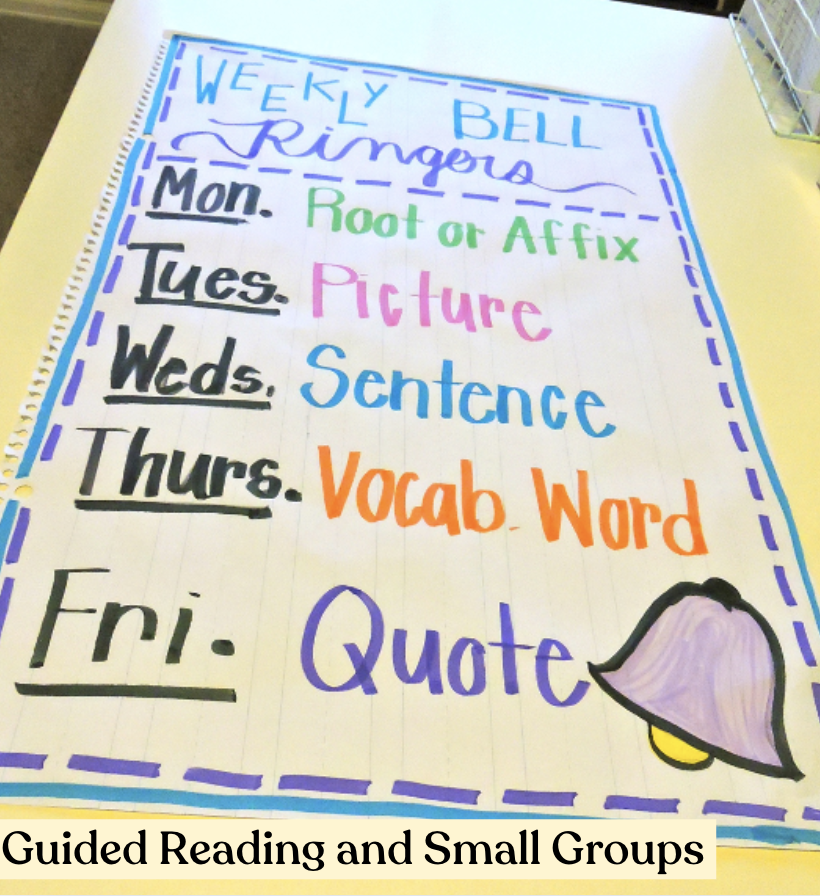 WEEKLY BELL
Ringers
Mon. Root or Affix
Tues. Picture
Weds. Sentence
Thurs. Vocab. Word
Fri. Quote
Guided Reading and Small Groups